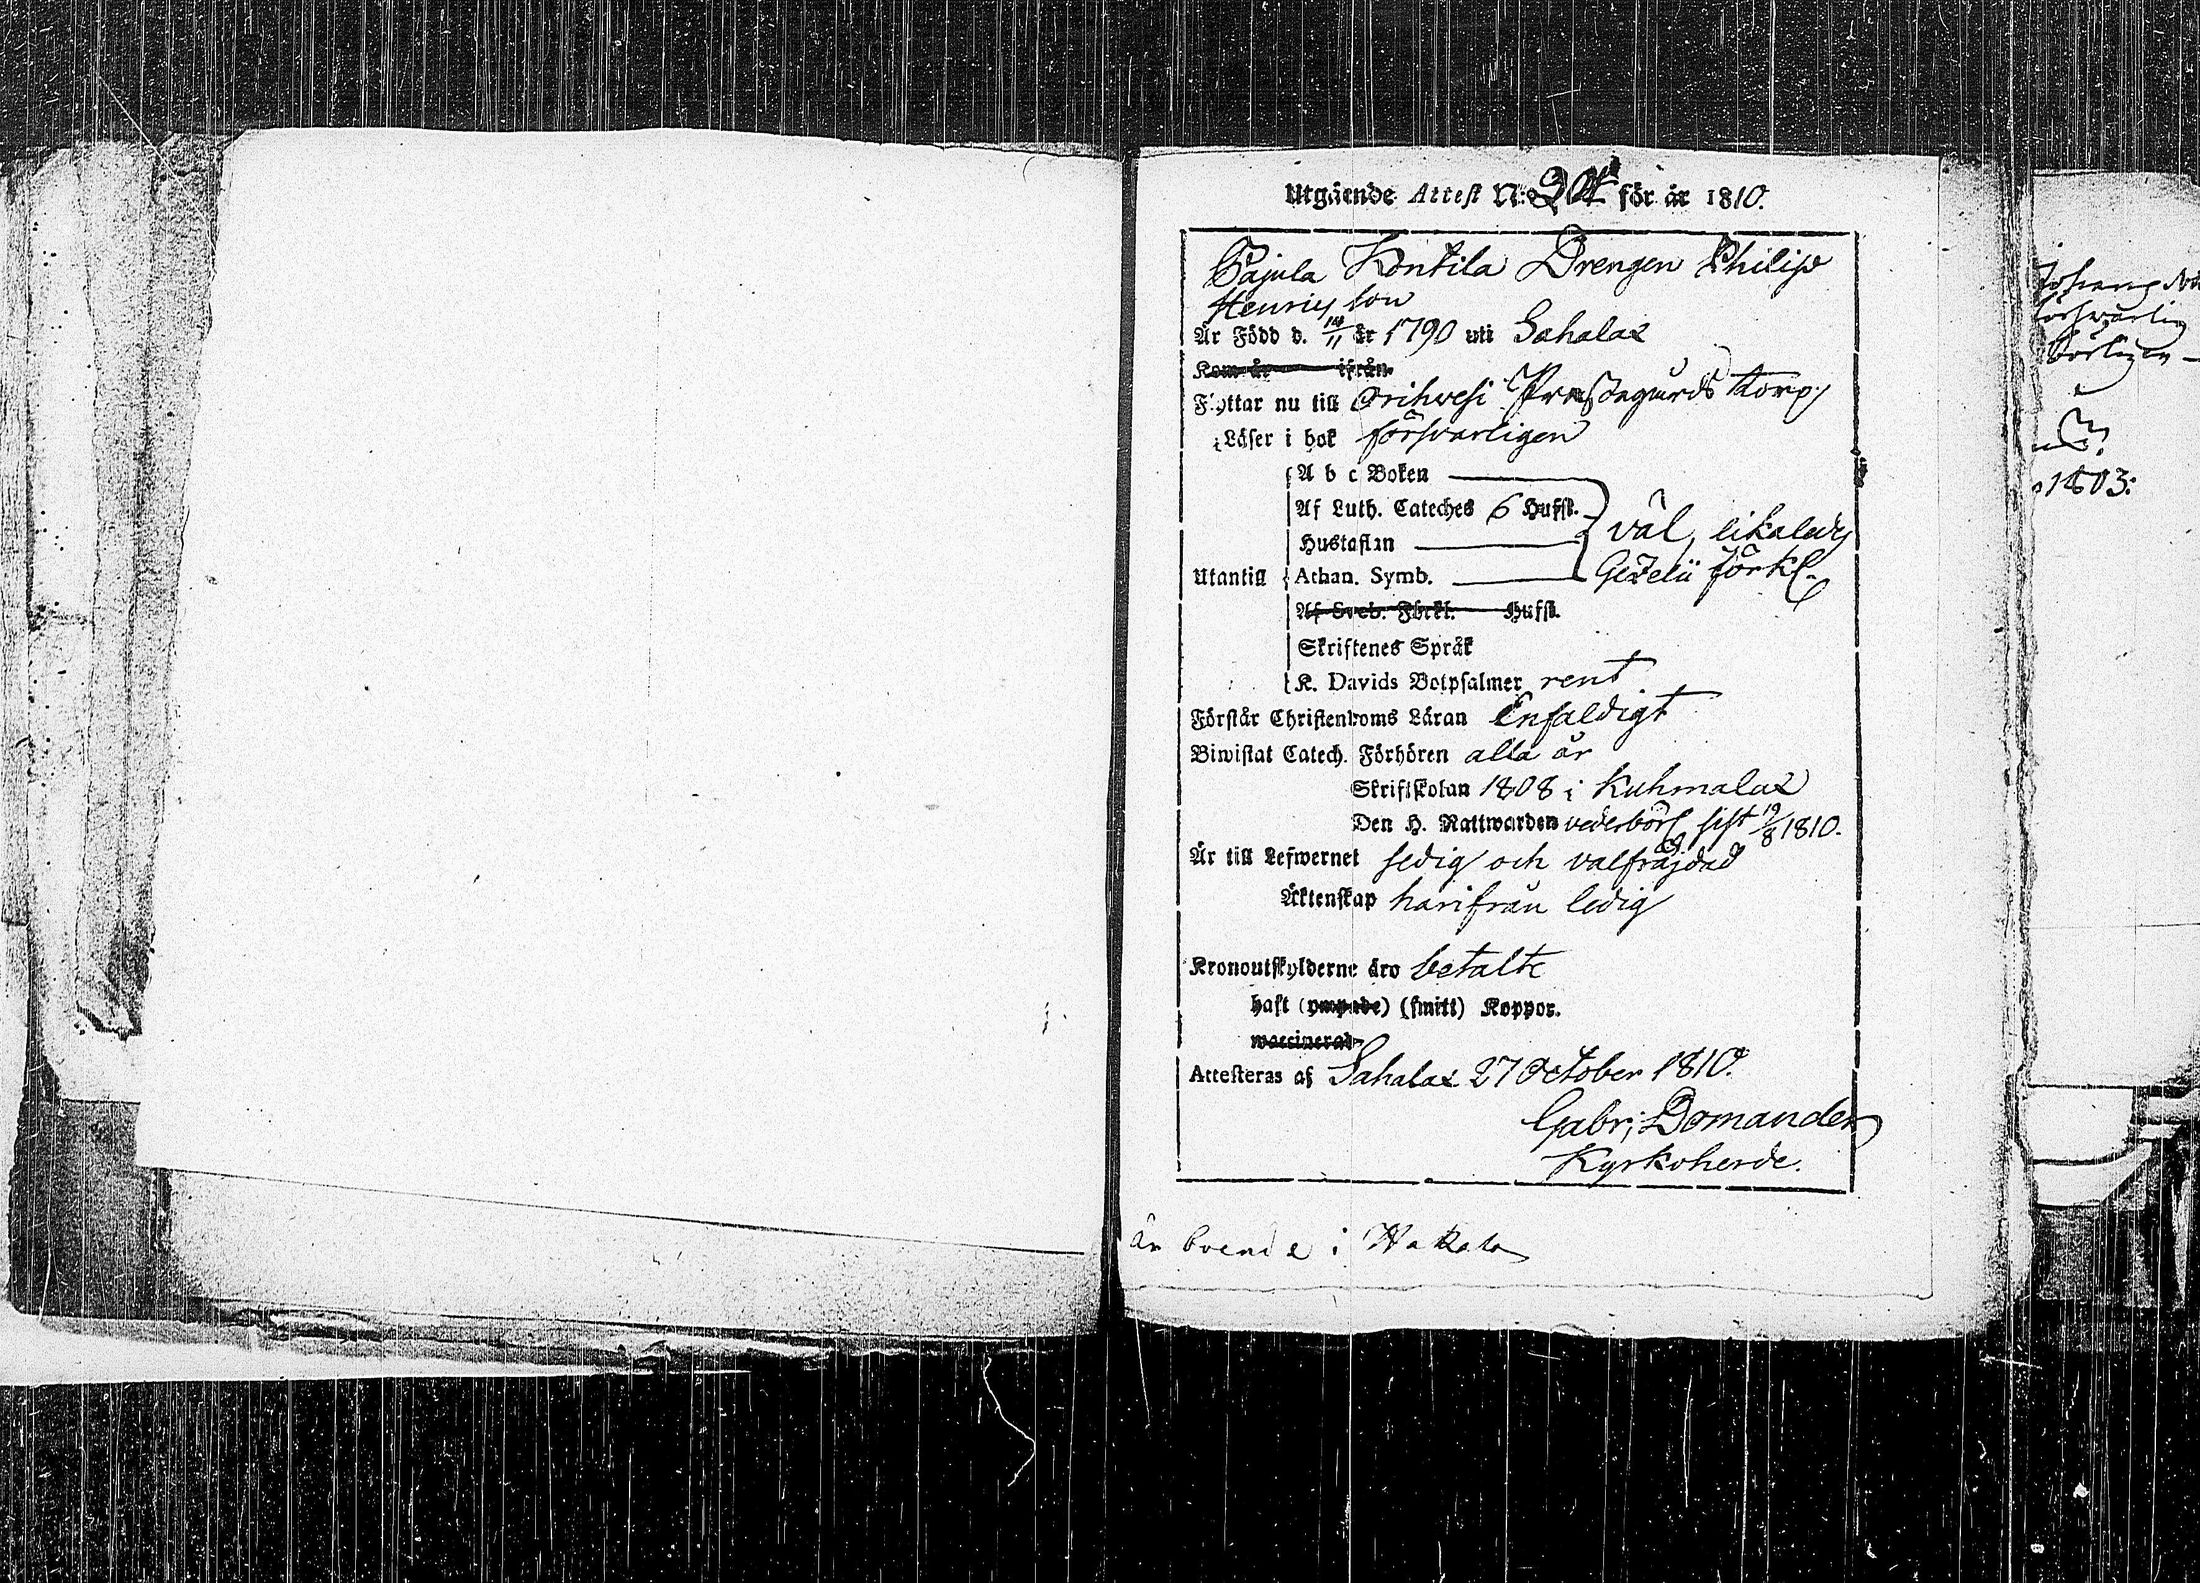 Utgående Attest N:o 24 för år 1810.
Pajula Konkila Drengen Philip
Henricsson
Är Född d. 14/11 år 1790 uti Sahalax
Kom år ifrån
Flyttar nu till Orihwesi Prestegårds torp,
Läser i bok försvarligen
A b c Boken
Af Luth. Cateches 6 Hufst.
väl, likaledes
Hustaflan
Utantill Athan. Symb.
Gezelii förkl.
Af Sveb. Förkl. Hufst.
Skriftenes Språk
K. Davids Botpsalmer rent
Förstår Christendoms Läran Enfaldigt
Biwistat Catech. Förhören alla år
Skriftskolan 1808 i Kuhmalax
Den H. Nattwarden vederbörl sist 19/8 1810.
Är till Lefwernet sedig och välfräjdad
Äktenskap härifrån ledig
Kronoutskylderne äro betalte
haft (ympade) (smitt) Koppor.
waccinerad
Attesteras af Sahalax 27 October 1810.
Gabr; Domander
Kyrkoherde.
är boende i Hakala
1803: